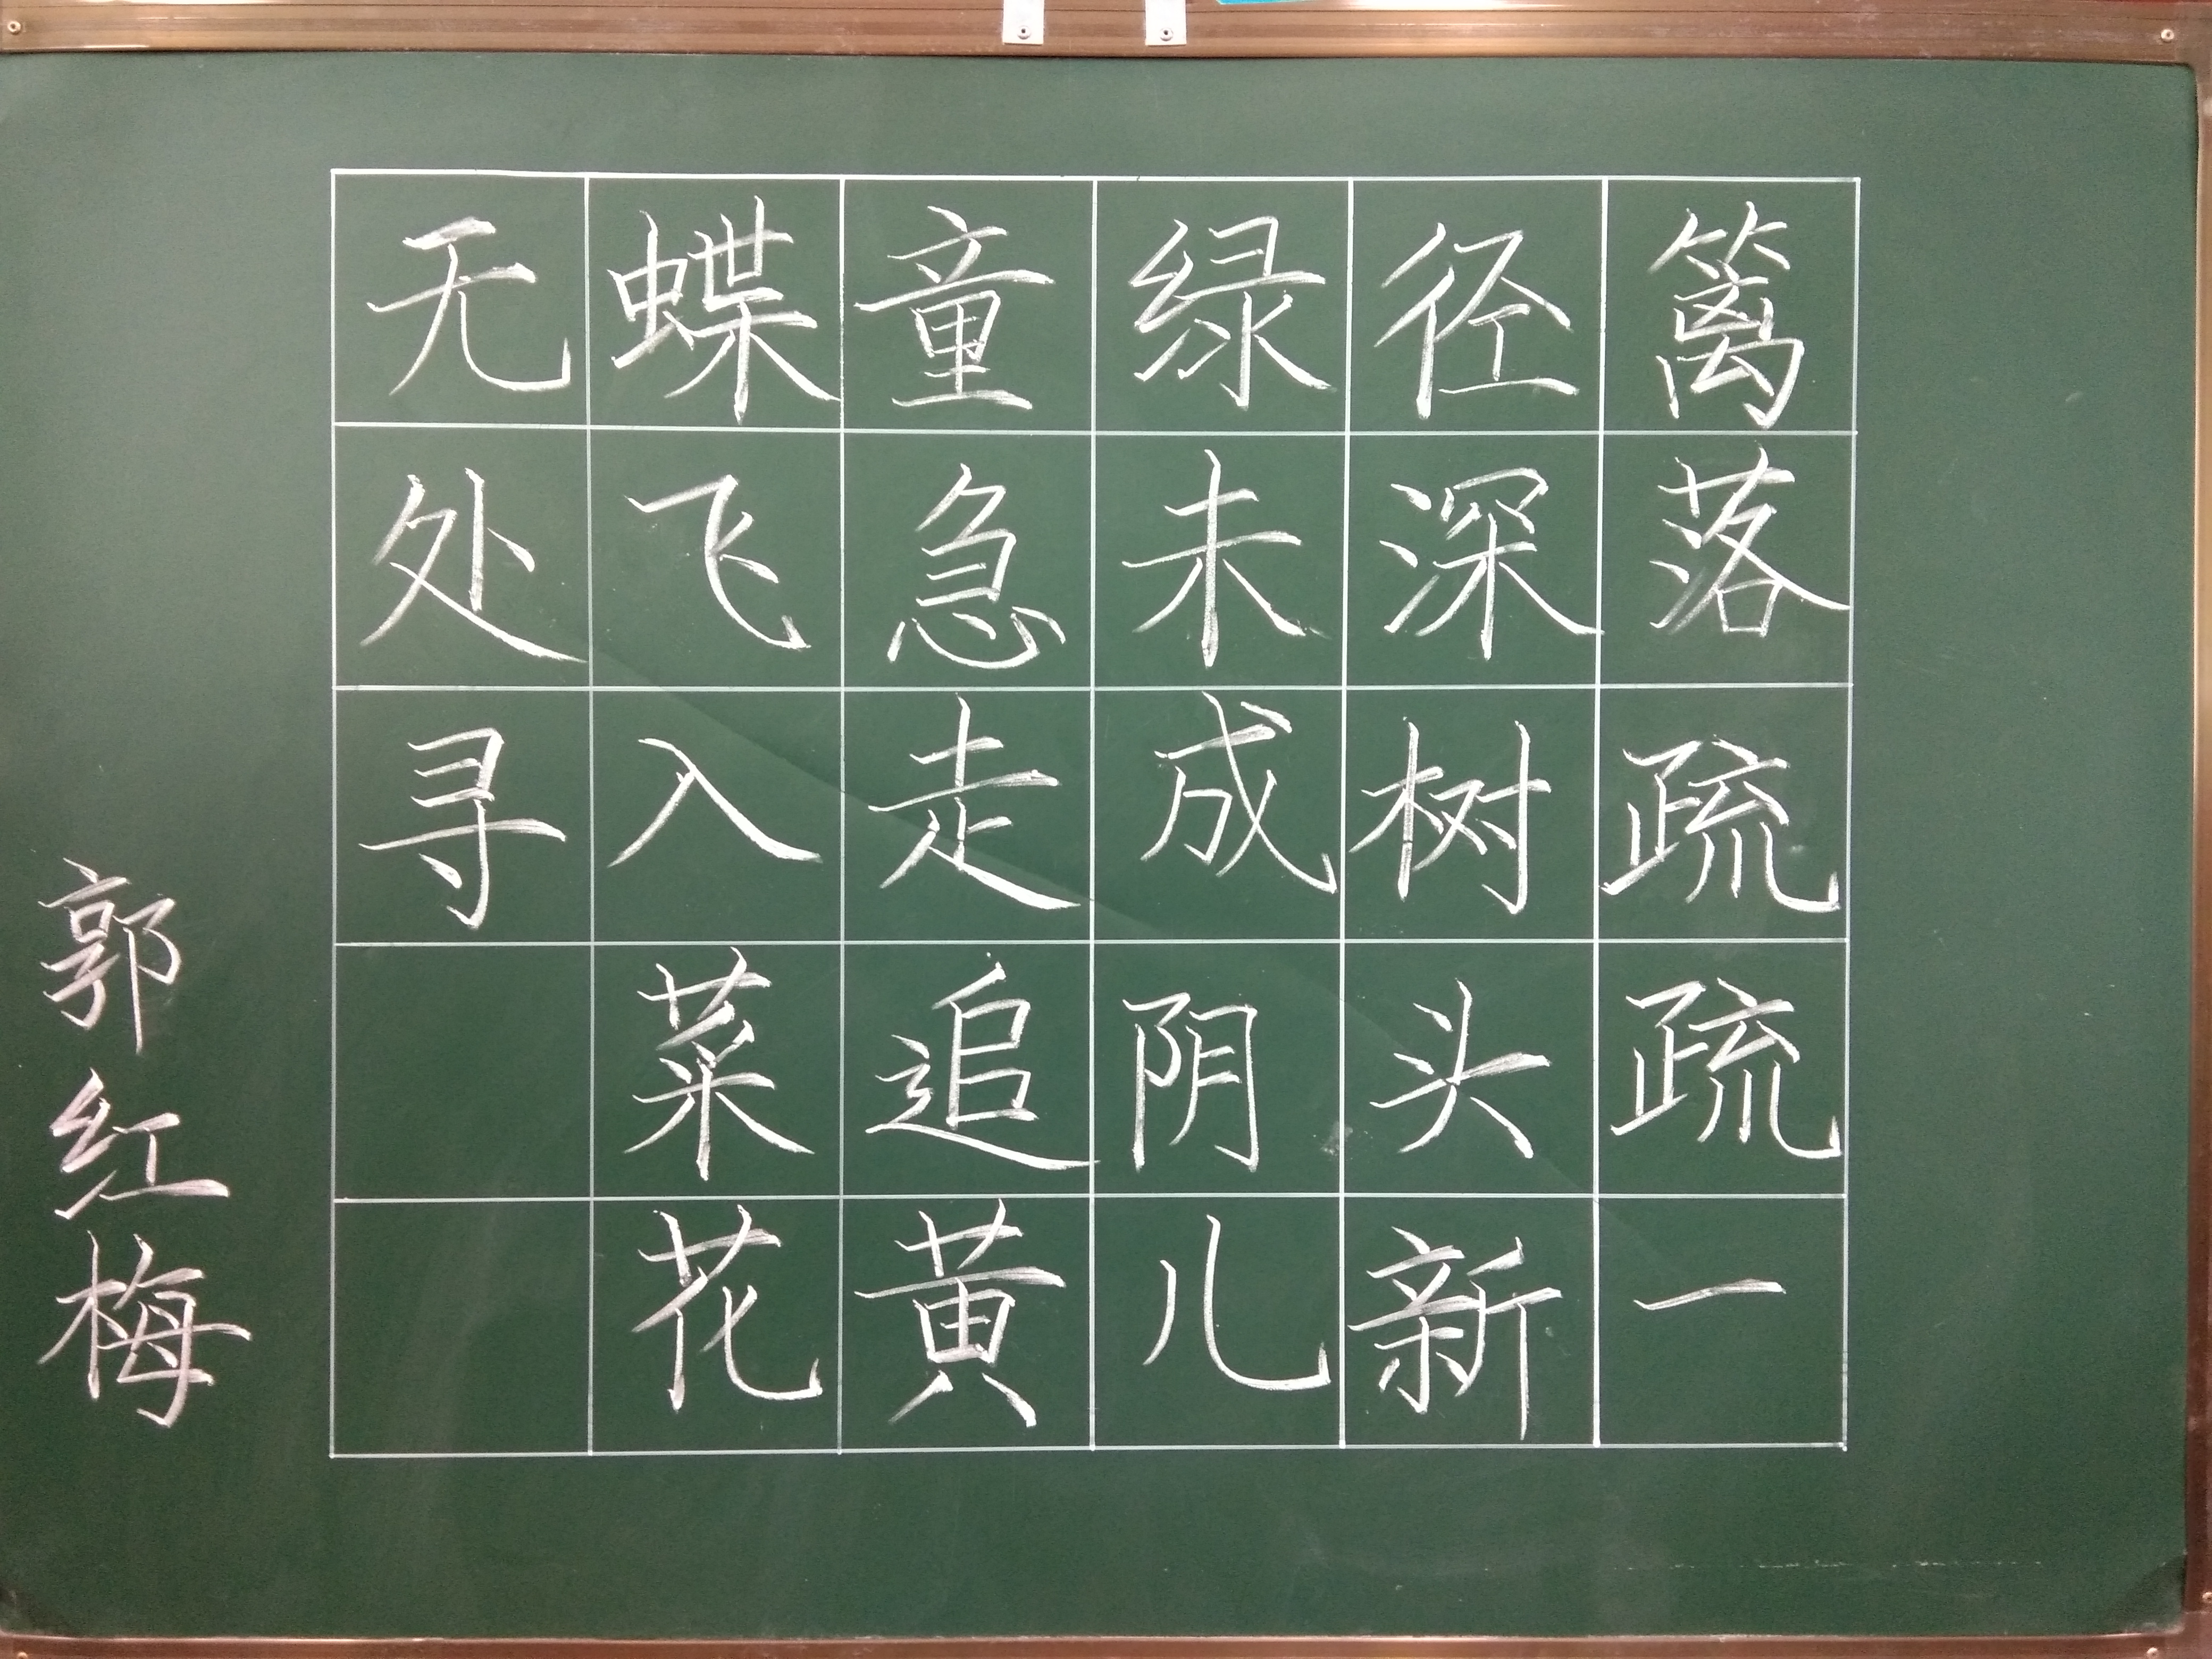 篱落疏疏一
径深树头新
绿未成阴儿
童急走追黄
蝶飞入菜花
无处寻
郭红梅